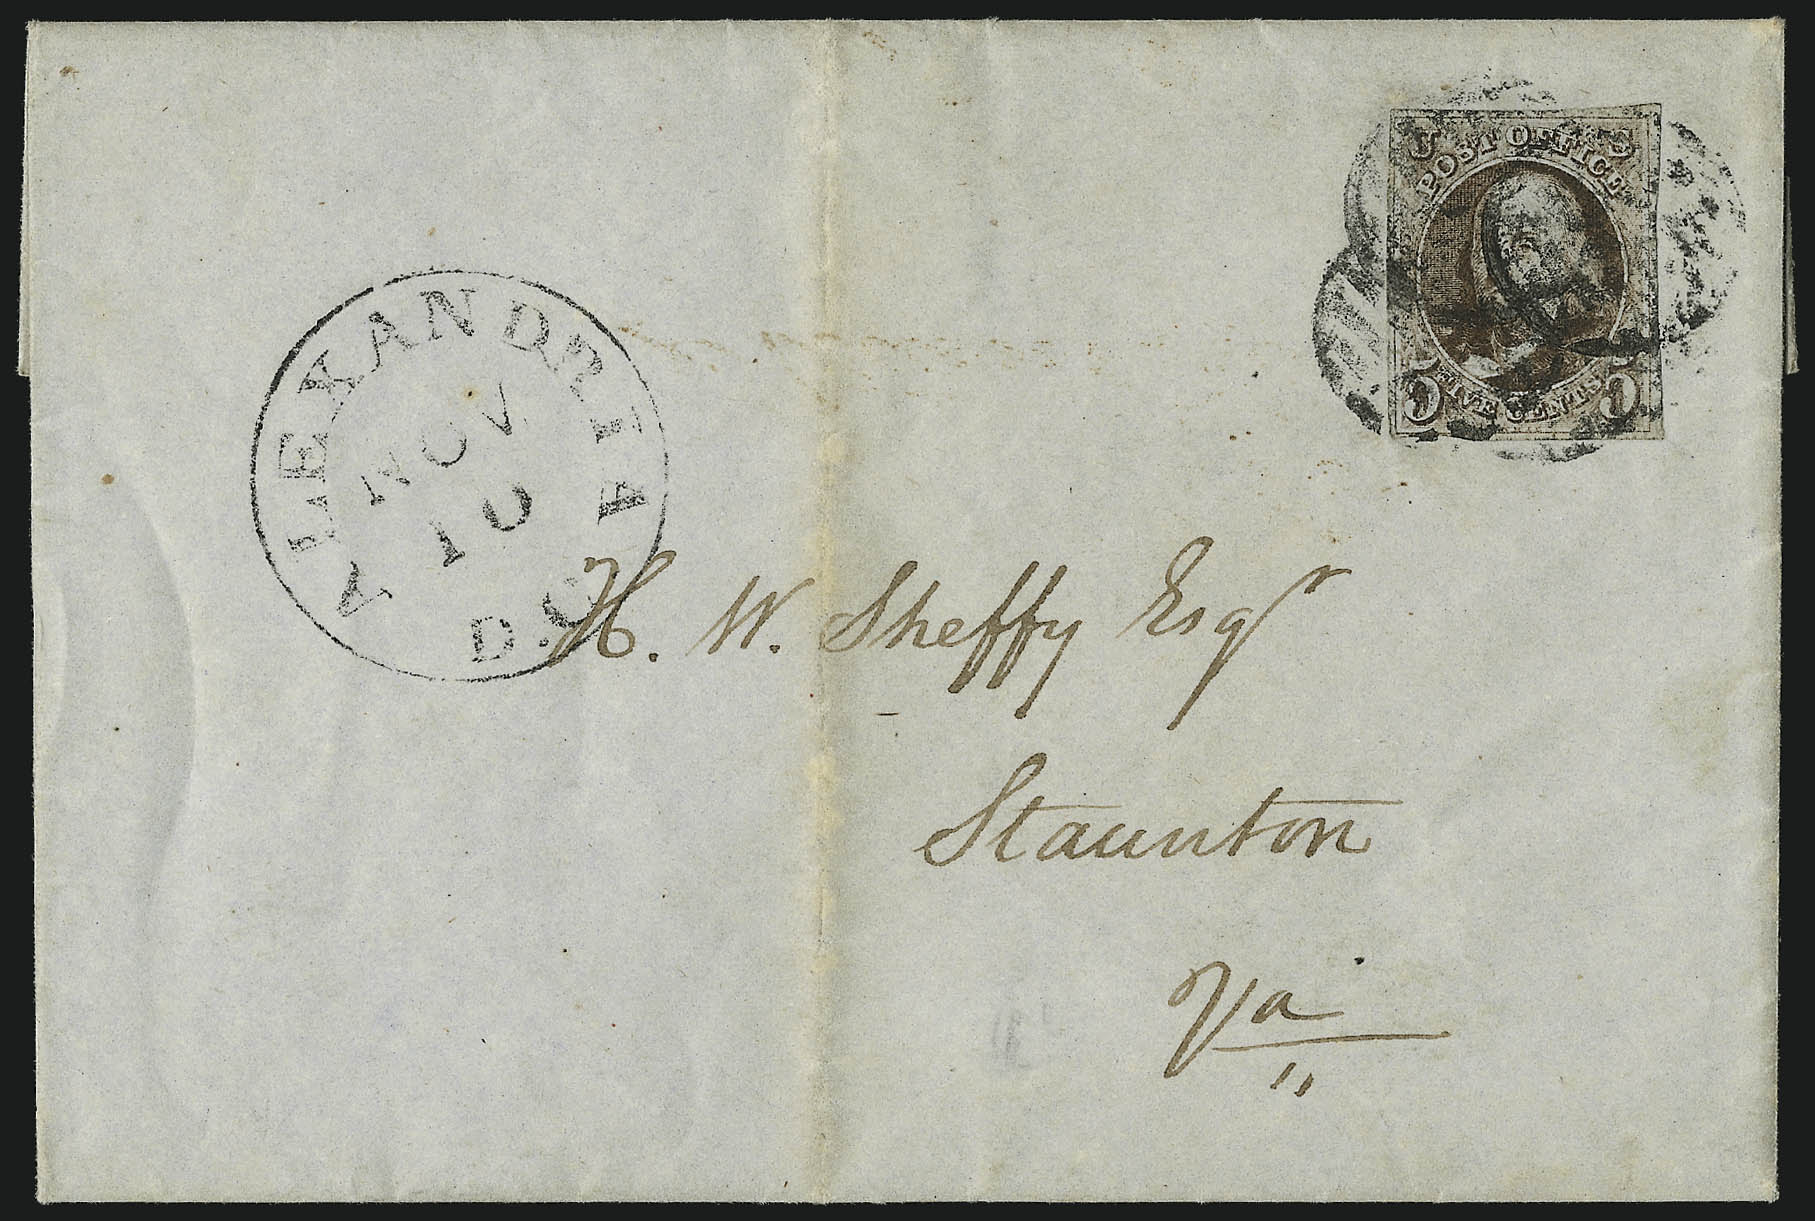 U S
POST OFFICE
5 FIVE CENTS 5
ALEXANDRIA
NOV
10
D.C.
H. W. Sheffy Esqr
Staunton
Va